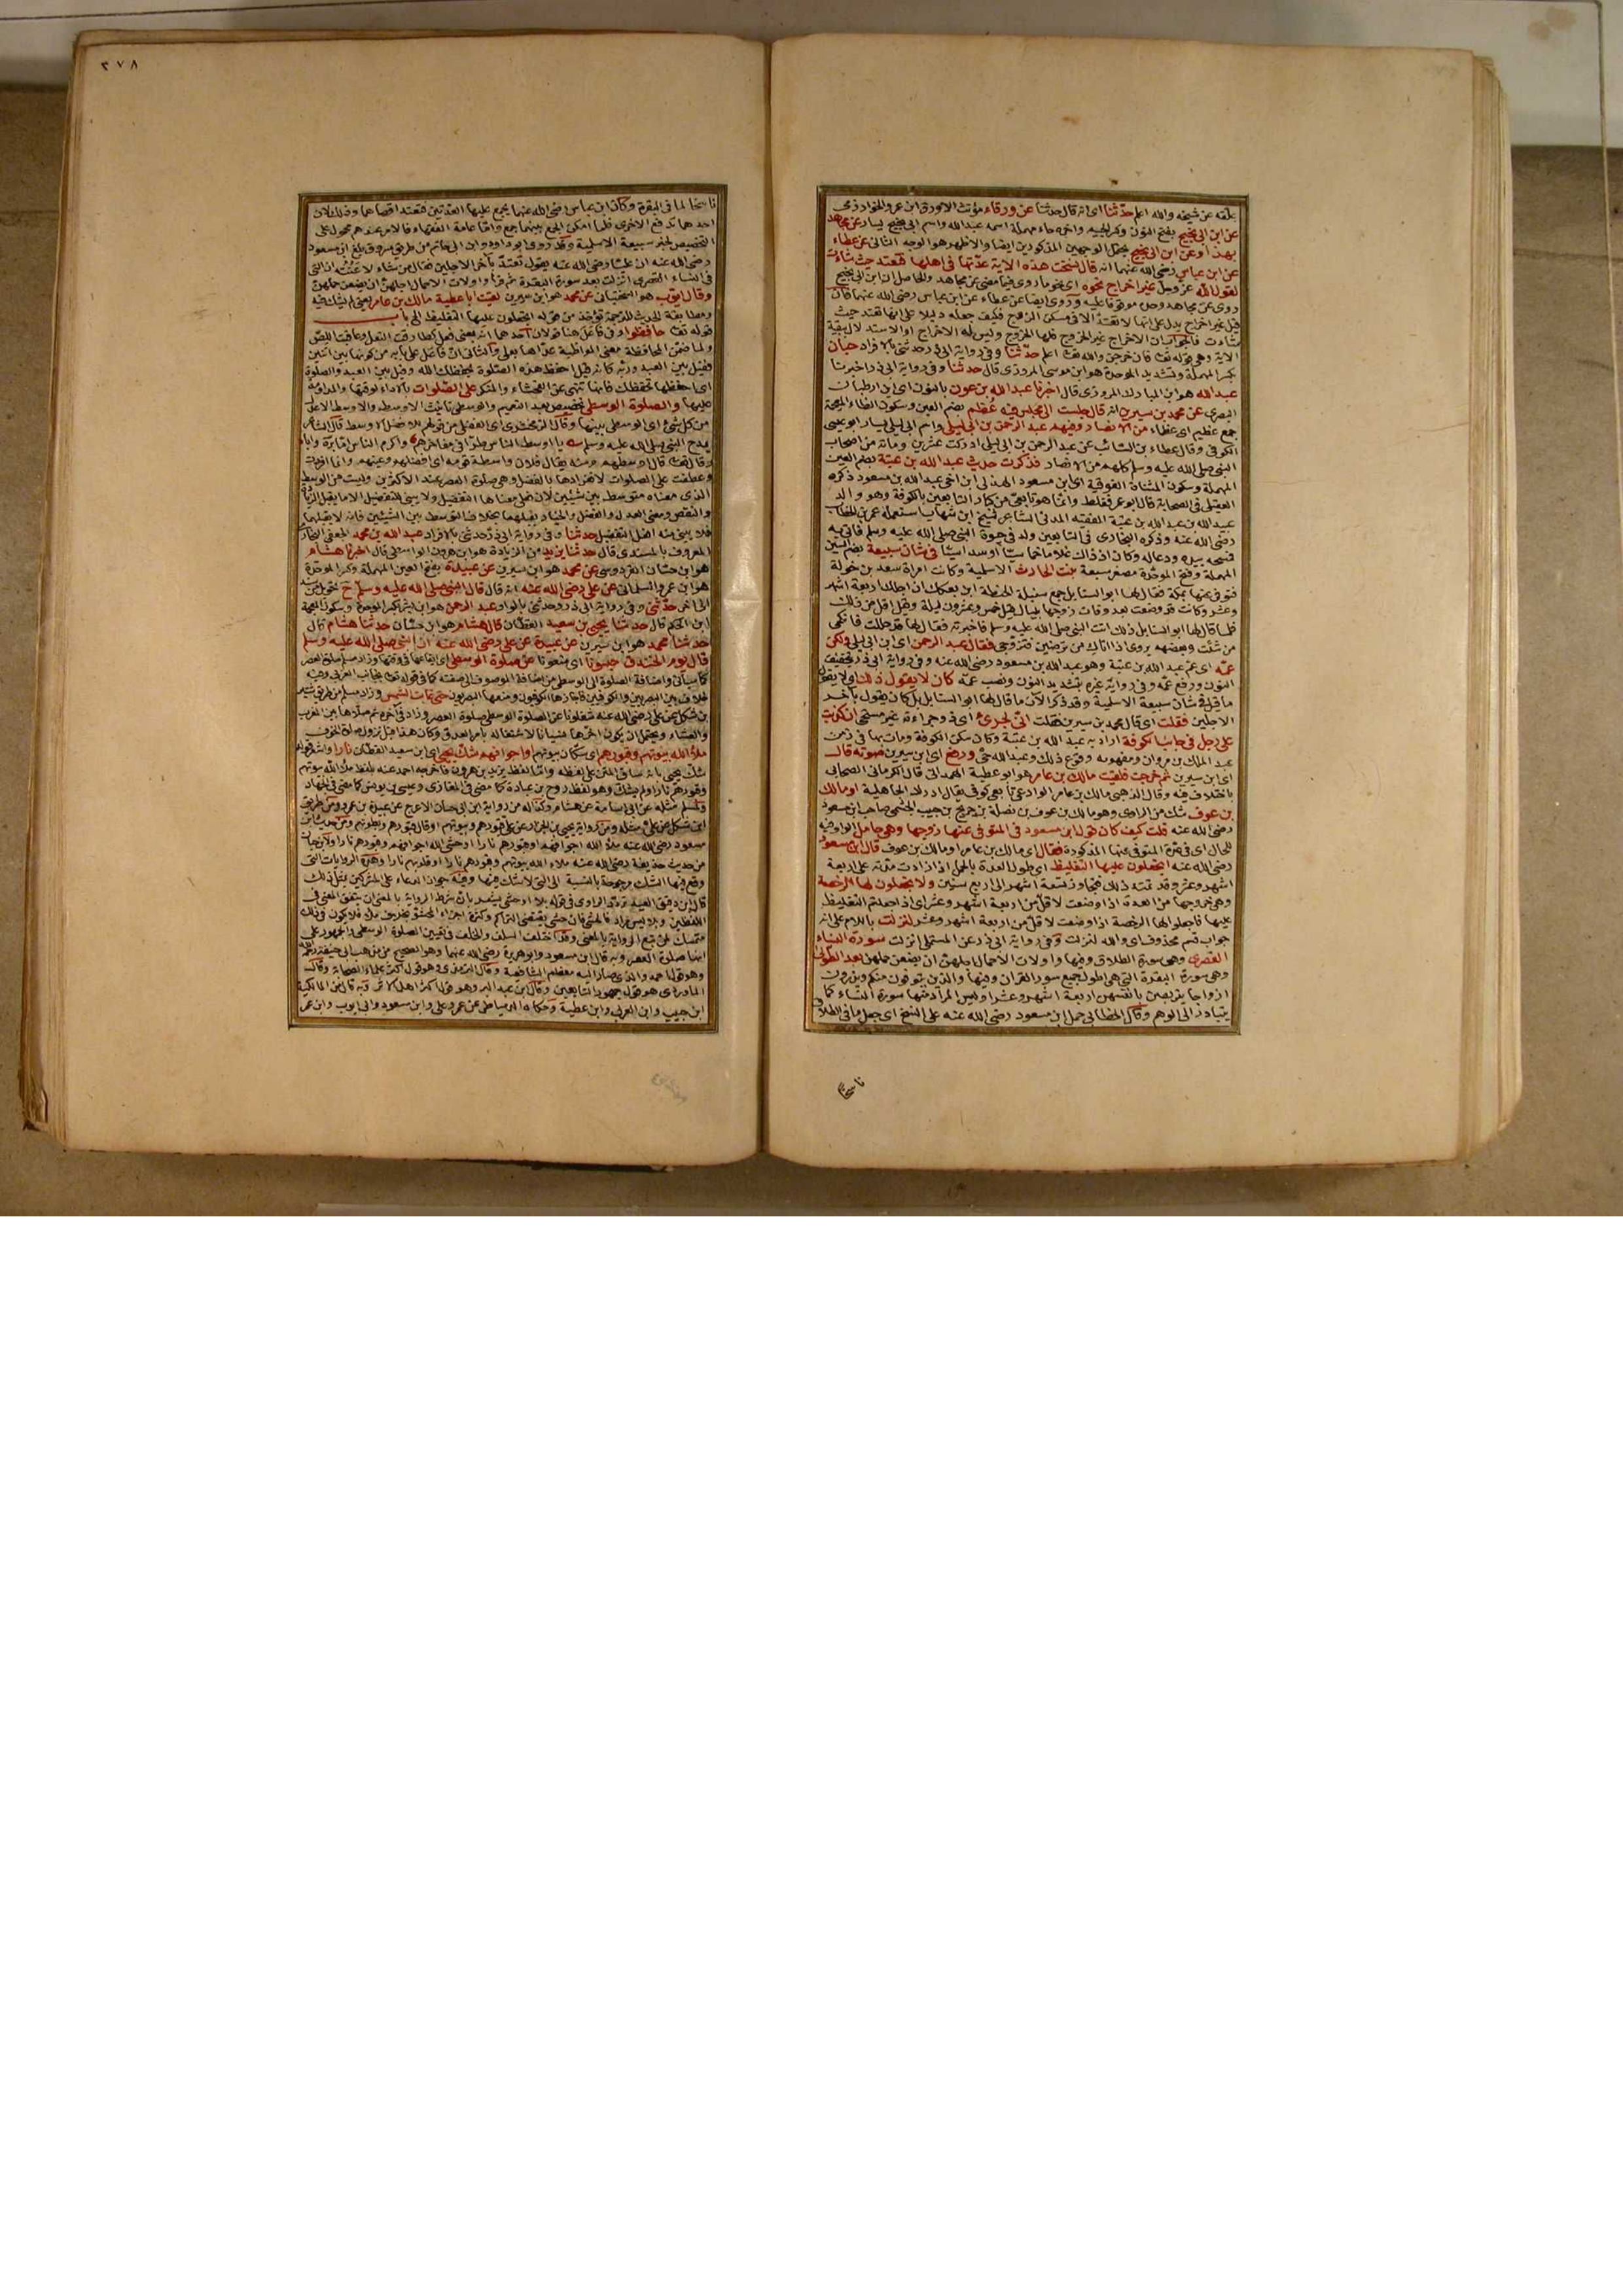 علقه عن شيخه والله اعلم حدثنا اى انه قال حدثنا عن ورقاء مؤنث الاورق ابن عمرو الخوارزمى
عن ابن ابى نجيح بفتح النون وكسر الجيم واخره حاء مهملة اسمه عبد الله واسم ابى نجيح يسار عن مجاهد
بهذا وعن ابن ابى نجيح يحتمل الوجهين المذكورين ايضا والاظهر هو الوجه الثانى عن عطاء
عن ابن عباس رضى الله عنهما انه قال نسخت هذه الاية عدتها فى اهلها فتعتد حيث شاءت
لقول الله عز وجل غير اخراج نحوه اى نحو ما روى فيما مضى عن مجاهد والحاصل ان ابن ابى نجيح
روى عن مجاهد وحده موقوفا عليه وروى ايضا عن عطاء عن ابن عباس رضى الله عنهما فان
قيل غير اخراج يدل على انها لا تعتد الا فى مسكن الزوج فكيف جعله دليلا على انها تعتد حيث
شاءت فالجواب ان الاخراج غير الخروج فلها الخروج وليس له الاخراج او الاستدلال ببقية
الاية وهى قوله تعالى فان خرجن والله تعالى اعلم حدثنا وفى رواية ابى ذر حدثنى بالافراد حبان
بكسر المهملة وتشديد الموحدة هو ابن موسى المروزى قال حدثنا وفى رواية ابى ذر اخبرنا
عبد الله هو ابن المبارك المروزى قال اخبرنا عبد الله بن عون بالنون اى ابن ارطبان
البصرى عن محمد بن سيرين انه قال جلست الى مجلس فيه عظم بضم العين وسكون الظاء المعجمة
جمع عظيم اى عظماء من الانصار وفيهم عبد الرحمن بن ابى ليلى واسم ابى ليلى يسار ابو عيسى
الكوفى وقال عطاء بن السائب عن عبد الرحمن بن ابى ليلى ادركت عشرين ومائة من اصحاب
النبى صلى الله عليه وسلم كلهم من الانصار فذكرت حديث عبد الله بن عتبة بضم العين
المهملة وسكون المثناة الفوقية اى ابن مسعود الهذلى ابن اخى عبد الله بن مسعود ذكره
العقيلى فى الصحابة قال ابو عمر فغلط وانما هو تابعى من كبار التابعين بالكوفة وهو والد
عبيد الله بن عبد الله بن عتبة الفقيه المدنى الشاعر شيخ ابن شهاب استعمله عمر بن الخطاب
رضى الله عنه وذكره البخارى فى التابعين ولد فى حيوة النبى صلى الله عليه وسلم فاتى به
فمسحه بيده ودعا له وكان اذ ذاك غلاما خماسيا او سداسيا فى شان سبيعة بضم السين
المهملة وفتح الموحدة مصغر سبعة بنت الحارث الاسلمية وكانت امراة سعد بن خولة
فتوفى عنها بمكة فقال لها ابو السنابل جمع سنبلة الحنطة ابن بعكك ان اجلك اربعة اشهر
وعشر وكانت قد وضعت بعد وفات زوجها بليال قيل خمس وعشرون ليلة وقيل اقل من ذلك
فلما قال لها ابو السنابل ذلك اتت النبى صلى الله عليه وسلم فاخبرته فقال لها قد حللت فانكحى
من شئت وبعضهم يروى اذا اتاك من ترضين فتزوجى فقال عبد الرحمن اى ابن ابى ليلى ولكن
عمه اى عم عبد الله بن عتبة وهو عبد الله بن مسعود رضى الله عنه وفى رواية ابى ذر بتخفيف
النون ورفع عمه وفى رواية غيره بتشديد النون ونصب عمه كان لا يقول ذلك اى لا يقول
ما قيل فى شان سبيعة الاسلمية وقد ذكر الآن ما قال لها ابو السنابل بل كان يقول بآخر
الاجلين فقلت اى قال محمد بن سيرين فقلت انى لجرئ اى ذو جراءة غير مستحى ان كذبت
على رجل فى جانب الكوفة اراد به عبد الله بن عتبة وكان سكن الكوفة ومات بها فى زمن
عبد الملك بن مروان ومفهومه وقوع ذلك وعبد الله حى ورفع اى ابن سيرين صوته قال
اى ابن سيرين ثم خرجت فلقيت مالك بن عامر هو ابو عطية الهمدانى قال الكرمانى الصحابى
باختلاف فيه وقال الذهبى مالك بن عامر الوادعى تابعى كوفى يقال ادرك الجاهلية او مالك
بن عوف شك من الراوى وهو مالك بن عوف بن نضلة بن جريج بن حبيب الجشمى صاحب ابن مسعود
رضى الله عنه قلت كيف كان قول ابن مسعود فى المتوفى عنها زوجها وهى حامل الواو فيه
للحال اى فى عدة المتوفى عنها المذكورة فقال اى مالك بن عامر او مالك بن عوف قال ابن مسعود
رضى الله عنه اتجعلون عليها التغليظ اى طول العدة بالحمل اذا زادت مدته على اربعة
اشهر وعشر وقد تمتد ذلك فتجاوز تسعة اشهر الى اربع سنين ولا تجعلون لها الرخصة
وهى خروجها من العدة اذا وضعت لاقل من اربعة اشهر وعشر اى اذ جعلتم التغليظ
عليها فاجعلوا لها الرخصة اذا وضعت لاقل من اربعة اشهر وعشر لنزلت باللام على انه
جواب قسم محذوف اى والله لنزلت وفى رواية ابى ذر عن المستملى انزلت سورة النساء
القصرى وهى سورة الطلاق وفيها واولات الاحمال اجلهن ان يضعن حملهن بعد الطولى
وهى سورة البقرة التى هى اطول جميع سور القران وفيها والذين يتوفون منكم ويذرون
ازواجا يتربصن بانفسهن اربعة اشهر وعشرا وليس المراد منها سورة النساء كما
يتبادر الى الوهم وقال الخطابى حمل ابن مسعود رضى الله عنه على النسخ اى جعل ما فى الطلاق
ناسخا
٣٧٨
ناسخا لما فى البقرة وكان ابن عباس رضى الله عنهما يجمع عليها العدتين فتعتد اقصاهما وذلك لان
احدهما ترفع الاخرى فلما امكن الجمع بينهما جمع واما عامة الفقهاء فالامر عندهم محمول على
التخصيص لخبر سبيعة الاسلمية وقد روى ابو داود وابن ابى حاتم من طريق مسروق بلغ ابن مسعود
رضى الله عنه ان عليا رضى الله عنه يقول تعتد بآخر الاجلين فقال من شاء لاعنته ان التى
فى النساء القصرى انزلت بعد سورة البقرة ثم قرأ واولات الاحمال اجلهن ان يضعن حملهن
وقال ايوب هو السختيانى عن محمد هو ابن سيرين لقيت ابا عطية مالك بن عامر يعنى لم يشك فيه
ومطابقة الحديث للترجمة تؤخذ من قوله اتجعلون عليها التغليظ الى باب
قوله تعالى حافظوا وفى فاعل هنا قولان احدهما انه بمعنى فعل كطارقت النعل وعاقبت اللص
ولما ضمن المحافظة معنى المواظبة عداها بعلى والثانى ان فاعل على بابه من كونها بين اثنين
فقيل بين العبد وربه كانه قيل احفظ هذه الصلوة يحفظك الله وقيل بين العبد والصلوة
اى احفظها تحفظك فانها تنهى عن الفحشاء والمنكر على الصلوات بالاداء لوقتها والمداومة
عليها والصلوة الوسطى تخصيص بعد التعميم والوسطى تانيث الاوسط والاوسط الاعدل
من كل شئ اى الوسطى بينها وقال الزمخشرى اى الفضلى من قولهم للافضل الاوسط قال الشاعر
يمدح النبى صلى الله عليه وسلم يا اوسط الناس طرا فى مفاخرهم واكرم الناس اما برة وابا
وقال تعالى قال اوسطهم ومنه يقال فلان واسطة قومه اى افضلهم وعينهم وانما افردت
وعطفت على الصلوات لانفرادها بالفضل وهى صلوة العصر عند الاكثرين وليست من الوسط
الذى معناه متوسط بين شيئين لان فعلى معناها التفضيل ولا يبنى للتفضيل الا ما يقبل الزيادة
والنقص ومعنى العدل والفضل والخيار يقبلهما بخلاف التوسط بين الشيئين فانه لا يقبلهما
فلا يبنى منه افعل التفضيل حدثنا وفى رواية ابى ذر حدثنى بالافراد عبد الله بن محمد الجعفى البخارى
المعروف بالمسندى قال حدثنا يزيد من الزيادة هو ابن هرون الواسطى قال اخبرنا هشام
هو ابن حسان الفردوسى عن محمد هو ابن سيرين عن عبيدة بفتح العين المهملة وكسر الموحدة
هو ابن عمرو السلمانى عن على رضى الله عنه انه قال قال النبى صلى الله عليه وسلم ح تحويل من سند
الى اخر حدثنى وفى رواية ابى ذر وحدثنى بالواو عبد الرحمن هو ابن بشر بكسر الموحدة وسكون المعجمة
ابن الحكم قال حدثنا يحيى بن سعيد القطان قال هشام هو ابن حسان حدثنا هشام قال
حدثنا محمد هو ابن سيرين عن عبيدة عن على رضى الله عنه ان النبى صلى الله عليه وسلم
قال يوم الخندق حبسونا اى منعونا عن صلوة الوسطى اى ايقاعها فى وقتها وزاد مسلم صلوة العصر
كما سيأتى واضافة الصلوة الى الوسطى من اضافة الموصوف الى صفته كما فى قوله تعالى بجانب الغربى وفيه
خلاف بين البصريين والكوفيين فاجازها الكوفيون ومنعها البصريون حتى غابت الشمس وزاد مسلم من طريق شتير
بن شكل عن على رضى الله عنه شغلونا عن الصلوة الوسطى صلوة العصر وزاد فى آخره ثم صلاها بين المغرب
والعشاء ويحتمل ان يكون اخرها نسيانا لاشتغاله بامر العدو وكان هذا قبل نزول صلوة الخوف
ملأ الله بيوتهم وقبورهم اى سكان بيوتهم واجوافهم شك يحيى اى ابن سعيد القطان نارا
شك يحيى بانه ساق المتن على لفظه واما لفظ يزيد بن هرون فاخرجه احمد عنه بلفظ ملأ الله بيوتهم
وقبورهم نارا ولم يشك وهو لفظ روح بن عبادة كما مضى فى المغازى وعيسى بن يونس كما مضى فى الجهاد
ولمسلم مثله عن ابى اسامة عن هشام وكذا له من رواية ابى حسان الاعرج عن عبيدة بن عمرو ومن طريق
ابن شكل عن على مثله ومن رواية يحيى بن الجزار عن على قبورهم وبيوتهم او قال قبورهم وبطونهم ومن حديث ابن
مسعود رضى الله عنه ملأ الله اجوافهم وقبورهم نارا او حشى الله اجوافهم وقبورهم نارا ولابن حبان
من حديث حذيفة رضى الله عنه ملاء الله بيوتهم وقبورهم نارا او قلوبهم نارا وهذه الروايات التى
وقع فيها الشك مرجوحة بالنسبة الى التى لا شك فيها وفيه جواز الدعاء على المشركين بمثل ذلك
قال ابن دقيق العيد تردد الراوى فى قوله ملأ او حشى يشعر بان شرط الرواية بالمعنى ان يتفق المعنى فى
اللفظين وملأ ليس مرادفا لحشى فان حشى يقتضى التراكم وكثرة اجزاء المحشو بخلاف ملأ فلا يكون فى ذلك
متمسك لمن منع الرواية بالمعنى وقد اختلف السلف والخلف فى تعيين الصلوة الوسطى والجمهور على
انها صلوة العصر وبه قال ابن مسعود وابو هريرة رضى الله عنهما وهو الصحيح من مذهب ابى حنيفة رحمه الله
وهو قول احمد والذى صار اليه معظم الشافعية وقال الترمذى وهو قول اكثر علماء الصحابة وقال
الماوردى هو قول جمهور التابعين وقال ابن عبد البر وهو قول اكثر اهل الاثر وبه قال من المالكية
ابن حبيب وابن العربى وابن عطية وحكاه الدمياطى عن عمر وعلى وابن مسعود وابى ايوب وابن عمر